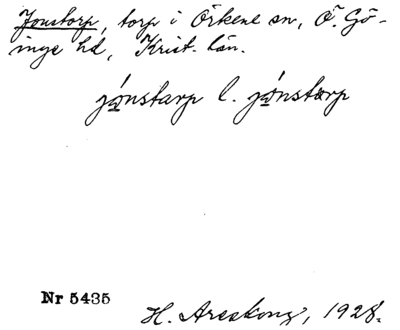 Jonstorp, torp i Örkene sn, Ö. Gö-
inge hd, Krist. län.
jónstarp l. jónstorp
Nr 5435
H. Areskong, 1928.